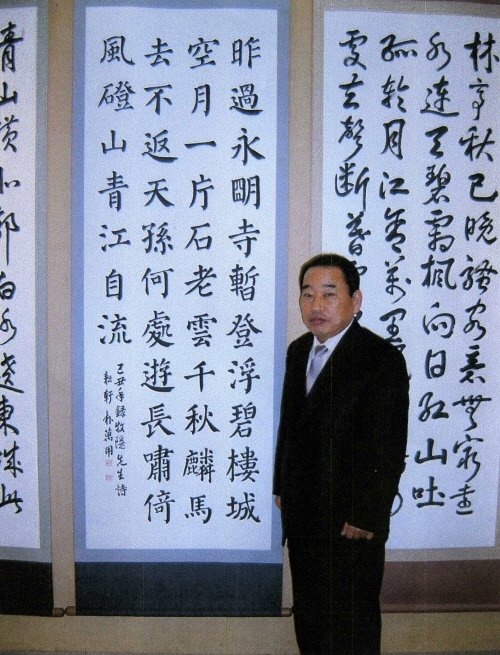 林亭秋已晚騷客意無窮遠
水連天碧霜楓向日紅山吐
孤輪月江含萬里風
處去聲斷暮
昨過永眀寺暫登浮碧樓城
空月一片石老雲千秋麟馬
去不返天孫何處遊長嘯倚
風磴山青江自流
己丑年録牧隱先生詩
軒朴萬用
青山橫北郭白水遶東城此